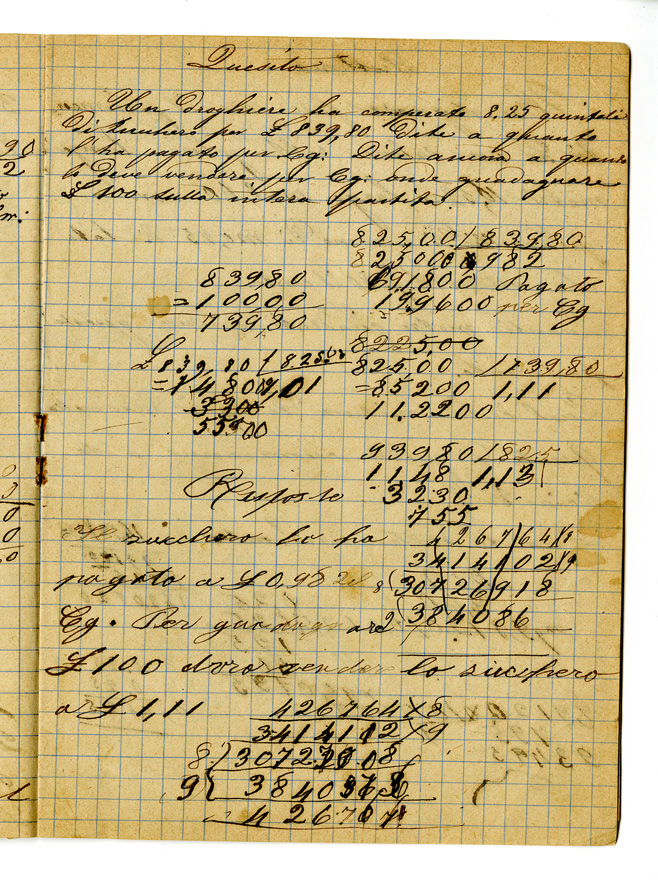 Quesito
Un droghiere ha comperato 8,25 quintali
di zucchero per £ 839,80 Dite a quanto
l'ha pagato per Cg: Dite ancora a quanto
lo deve vendere per Cg: onde guadagnare
£ 100 sulla intera partita.
825,00 / 839,80
82,5000 982
691800 Pagato
199600 per Cg
839,80
= 100,00
739,80
822500
£ 839,80 / 825,00
825,00 / 739,80
= 14800 1,01
= 85200 1,11
3300
11,2200
55900
93980 / 825
1148 1,13
3230
755
Risposta
Il zucchero lo ha
pagato a £ 0,982 il
Cg. Per guadagnare
£ 100 dovrò vender lo zucchero
a £ 1,11
426764 X 8
3414102 X 9
8 30726918
2 384086
426764 X 8
3414112 X 9
8
9